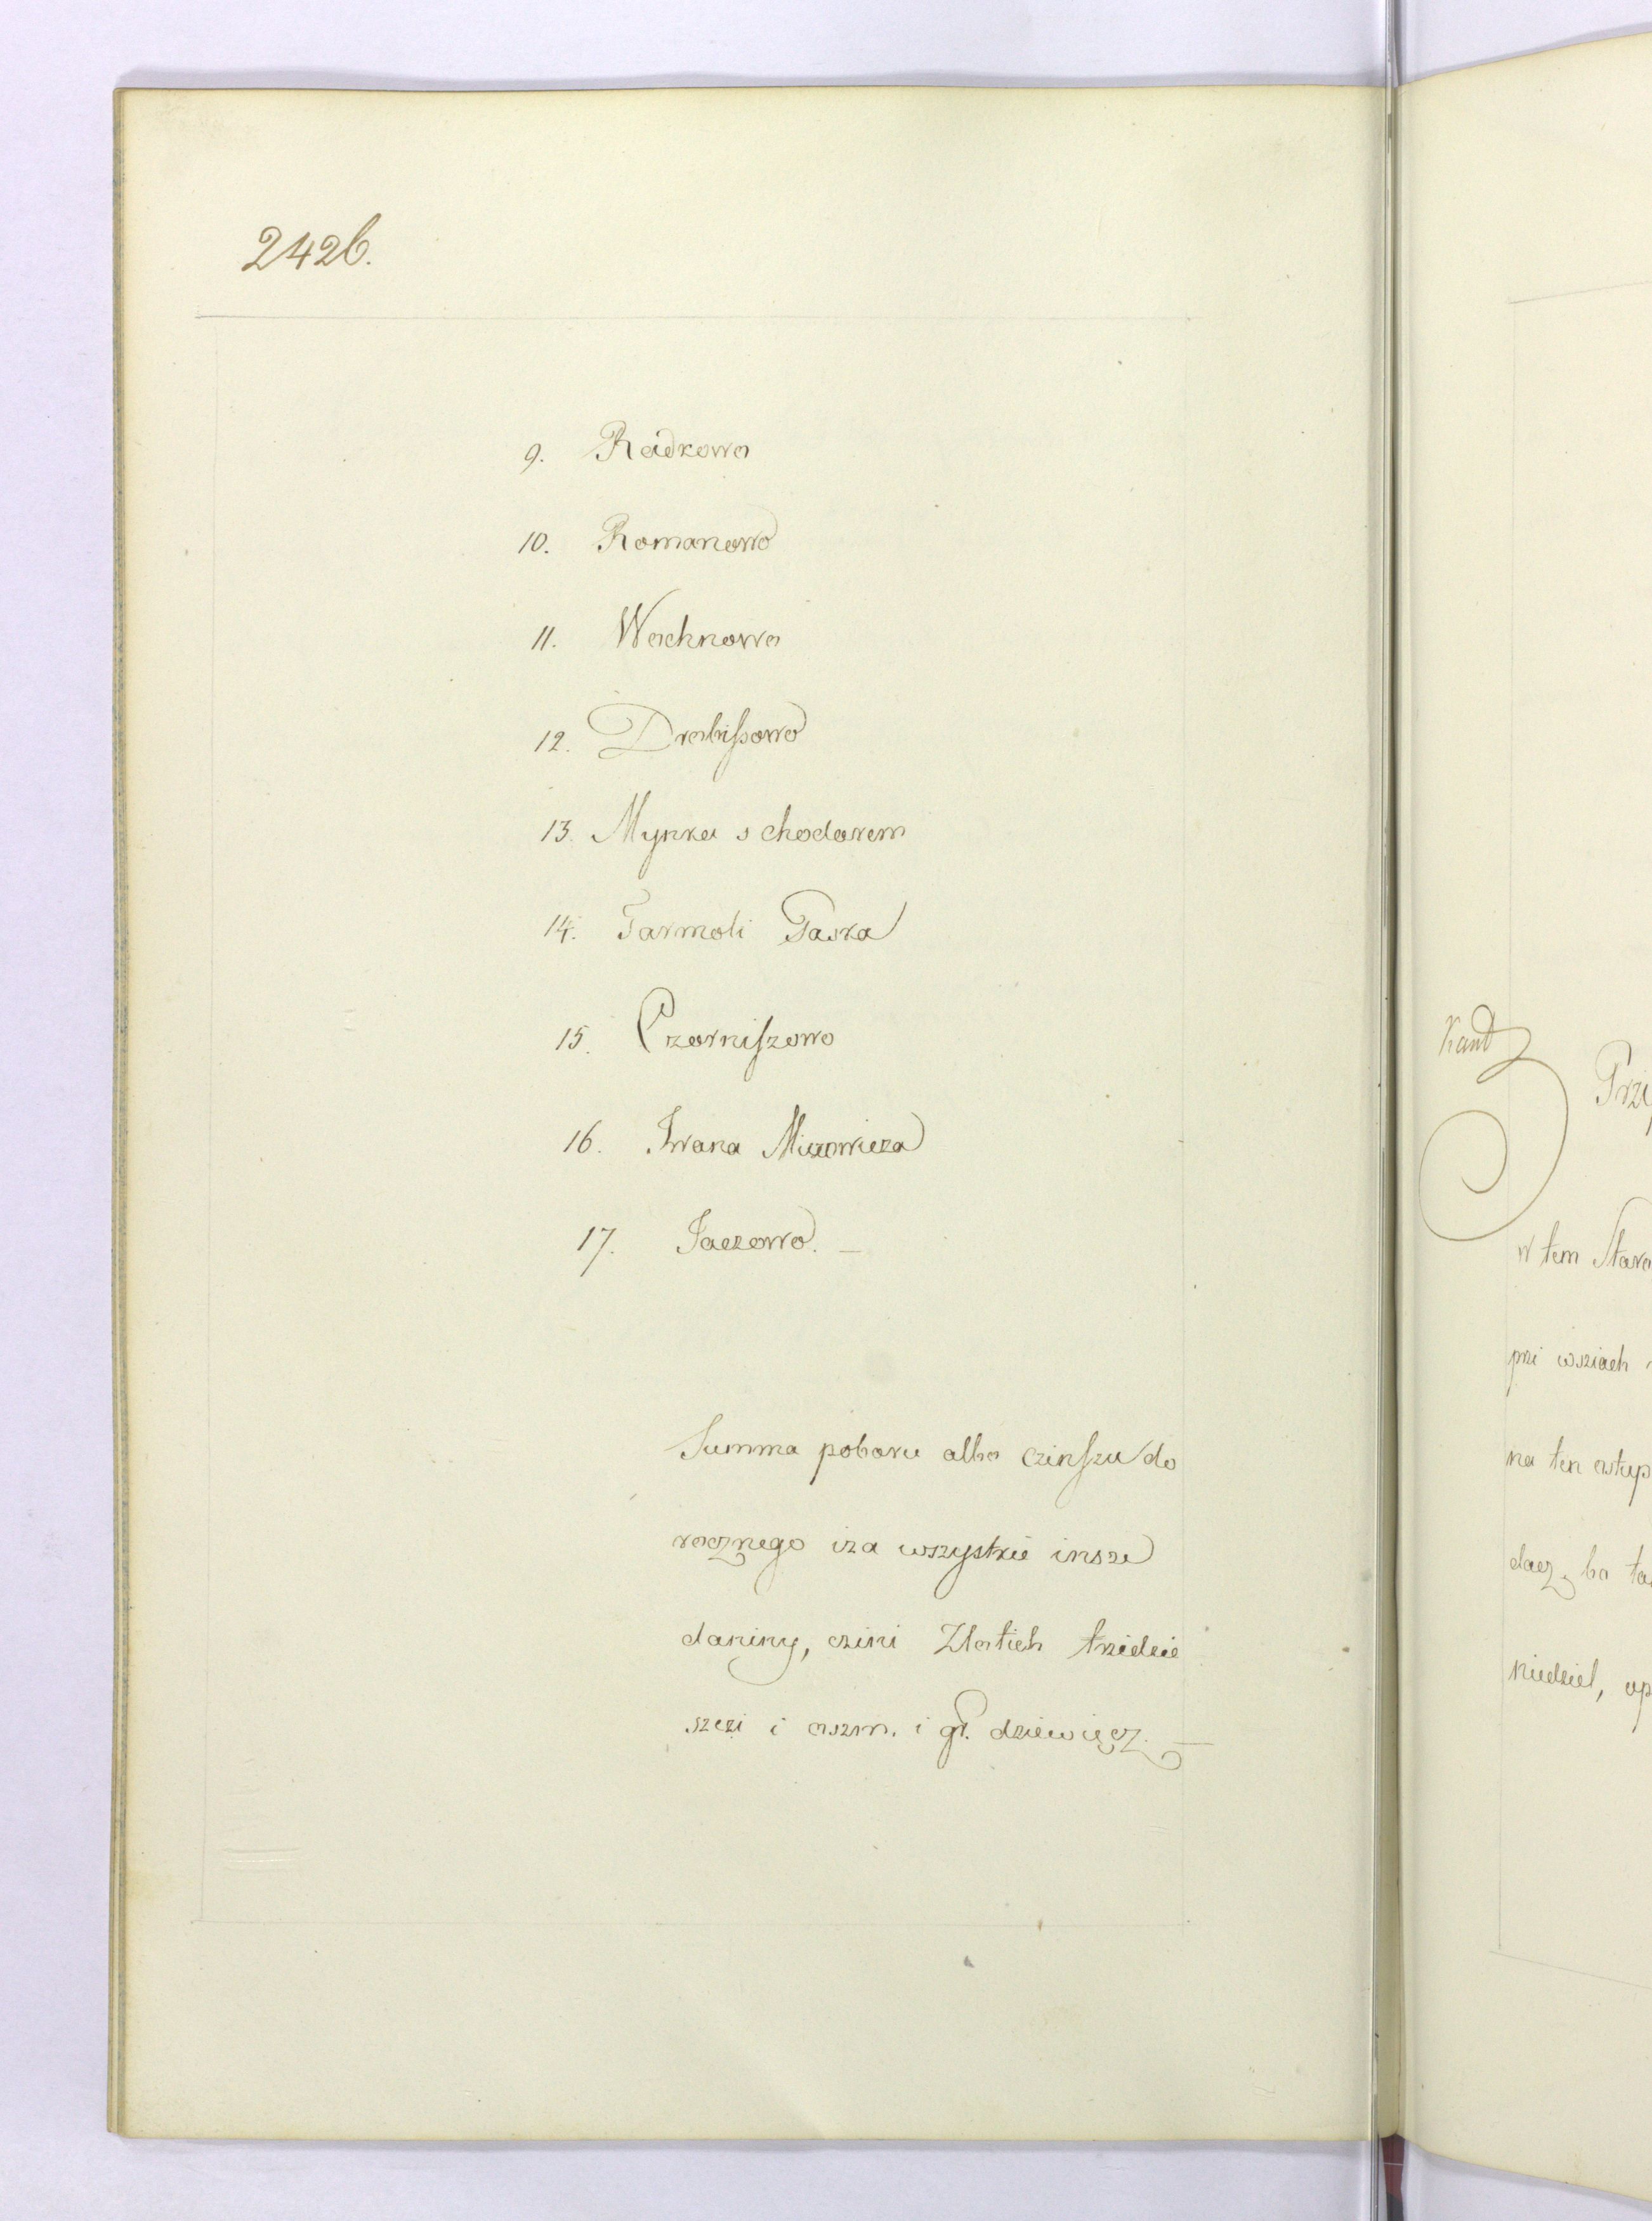 242b.
9. Radkowa
10. Romanowo
11. Wachnowa
12. Drabissowo
13. Mynka s chodorem
14. Jarmoli Paska
15. Czorniszowo
16. Iwana Miszowicza
17. Jaczowo. —
Summa poboru albo czinszu do
rocznego iza wszystkie insze
daniny, czini Złotich trzidzie
szczi i oszm. i gr. dziewięcz. —
Kand
Przi
w tem Staro
pri wsziach
na ten ostup
dacz, bo ta
niedziel, op